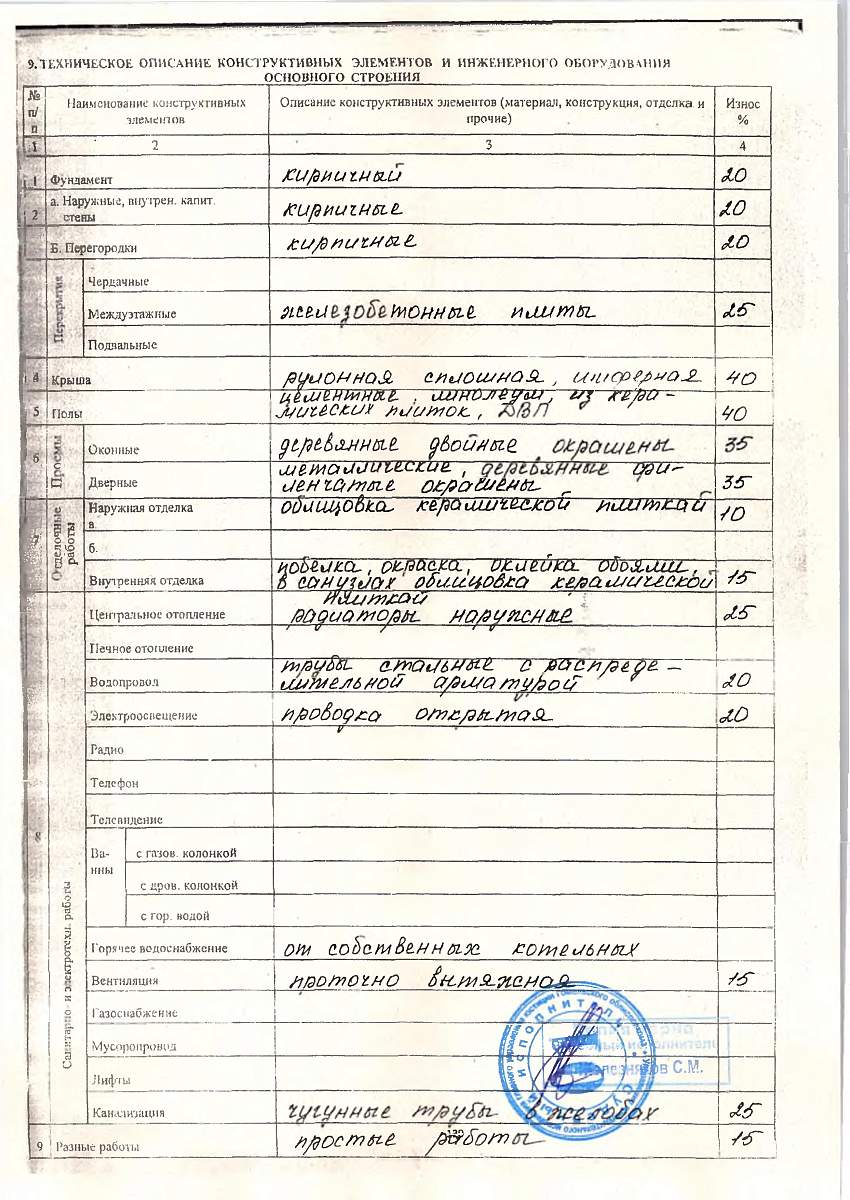 9. ТЕХНИЧЕСКОЕ ОПИСАНИЕ КОНСТРУКТИВНЫХ ЭЛЕМЕНТОВ И ИНЖЕНЕРНОГО ОБОРУДОВАНИЯ
ОСНОВНОГО СТРОЕНИЯ
№ п/п Наименование конструктивных элементов Описание конструктивных элементов (материал, конструкция, отделка и прочие) Износ %
1 2 3 4
1 Фундамент кирпичный 20
2 а. Наружные, внутрен. капит. стены кирпичные 20
Б. Перегородки кирпичные 20
Перекрытия
Чердачные
Междуэтажные железобетонные плиты 25
Подвальные
4 Крыша рулонная сплошная, шиферная 40
цементные, линолеум, из кера-
5 Полы мических плиток, ДВП 40
6 Проемы
Оконные деревянные двойные окрашены 35
металлические, деревянные фи-
Дверные ленчатые окрашены 35
7 Отделочные работы
Наружная отделка облицовка керамической плиткай 10
а.
б.
побелка, окраска, оклейка обоями,
Внутренняя отделка в санузлах облицовка керамической 15
плиткай
8 Санитарно- и электротехн. работы
Центральное отопление радиаторы наружные 25
Печное отопление
трубы стальные с распреде-
Водопровод лительной арматурой 20
Электроосвещение проводка открытая 20
Радио
Телефон
Телевидение
Ва-
нны
с газов. колонкой
с дров. колонкой
с гор. водой
Горячее водоснабжение от собственных котельных
Вентиляция проточно вытяжная 15
Газоснабжение
Мусоропровод
Лифты
Канализация чугунные трубы в желобах 25
9 Разные работы простые работы 15
С.М.